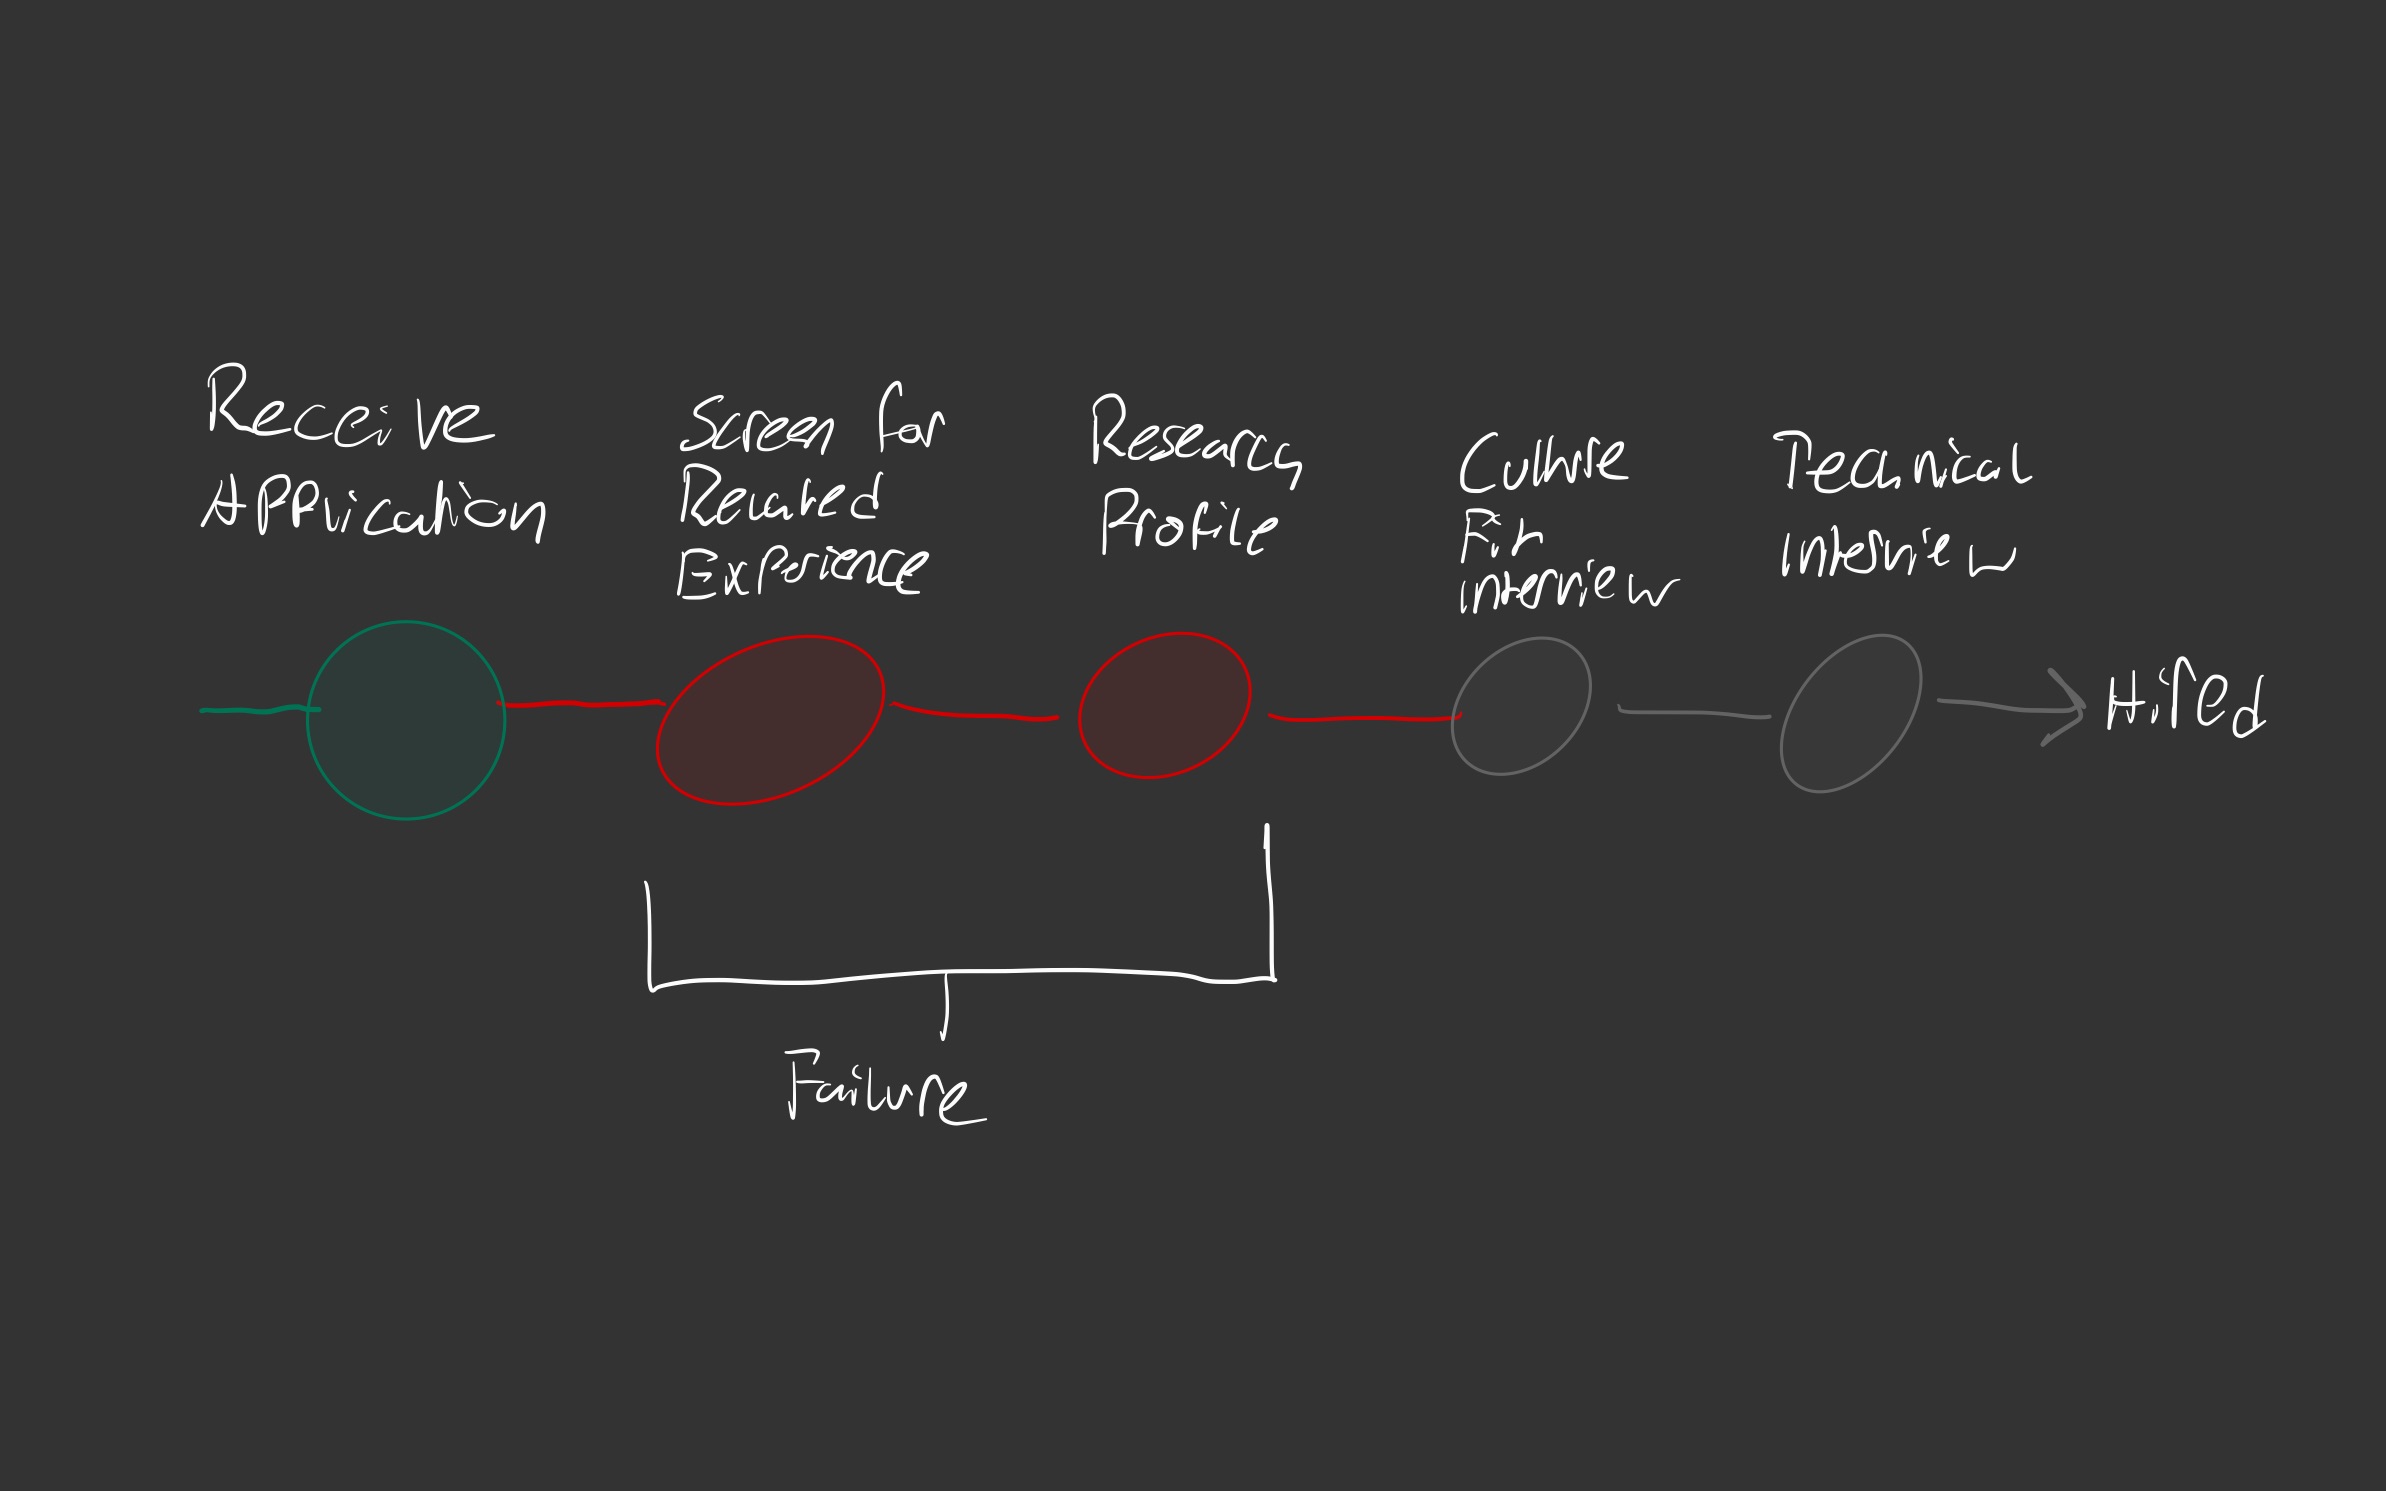 Receive
Application
Screen for
Related
Experience
Research
Profile
Culture
Fit
interview
Technical
interview
Hired
Failure